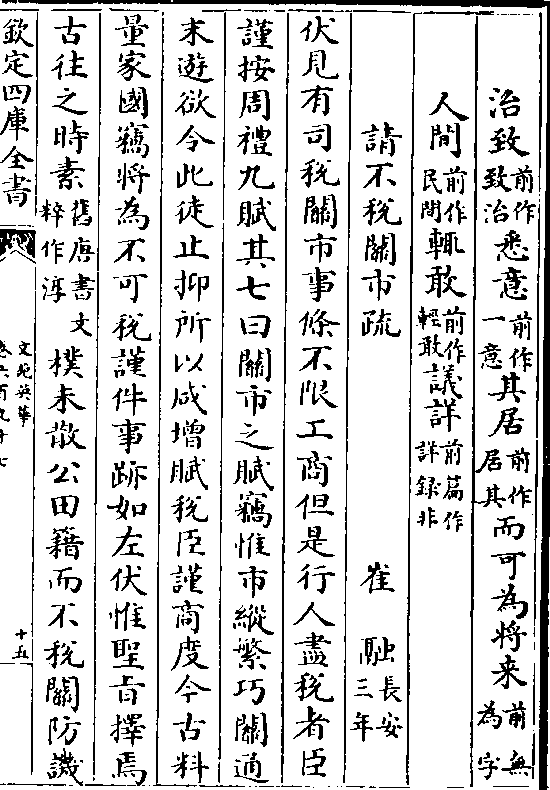 治致前作致治悉意前作一意其居前作居其而可為将来前無為字
人間前作民間輒敢前作輕敢議詳前篇作詳録非
請不税關市疏　崔融長安三年
伏見有司税關市事條不限工商但是行人盡税者臣
謹按周禮九賦其七曰關市之賦竊惟市縱繁巧關通
末遊欲令此徒止抑所以咸增賦税臣謹商度今古料
量家國竊將為不可税謹件事跡如左伏惟聖旨擇焉
古往之時素舊唐書文粹作淳樸未散公田籍而不税關防譏
欽定四庫全書
文苑英華
卷六百九十七
十五